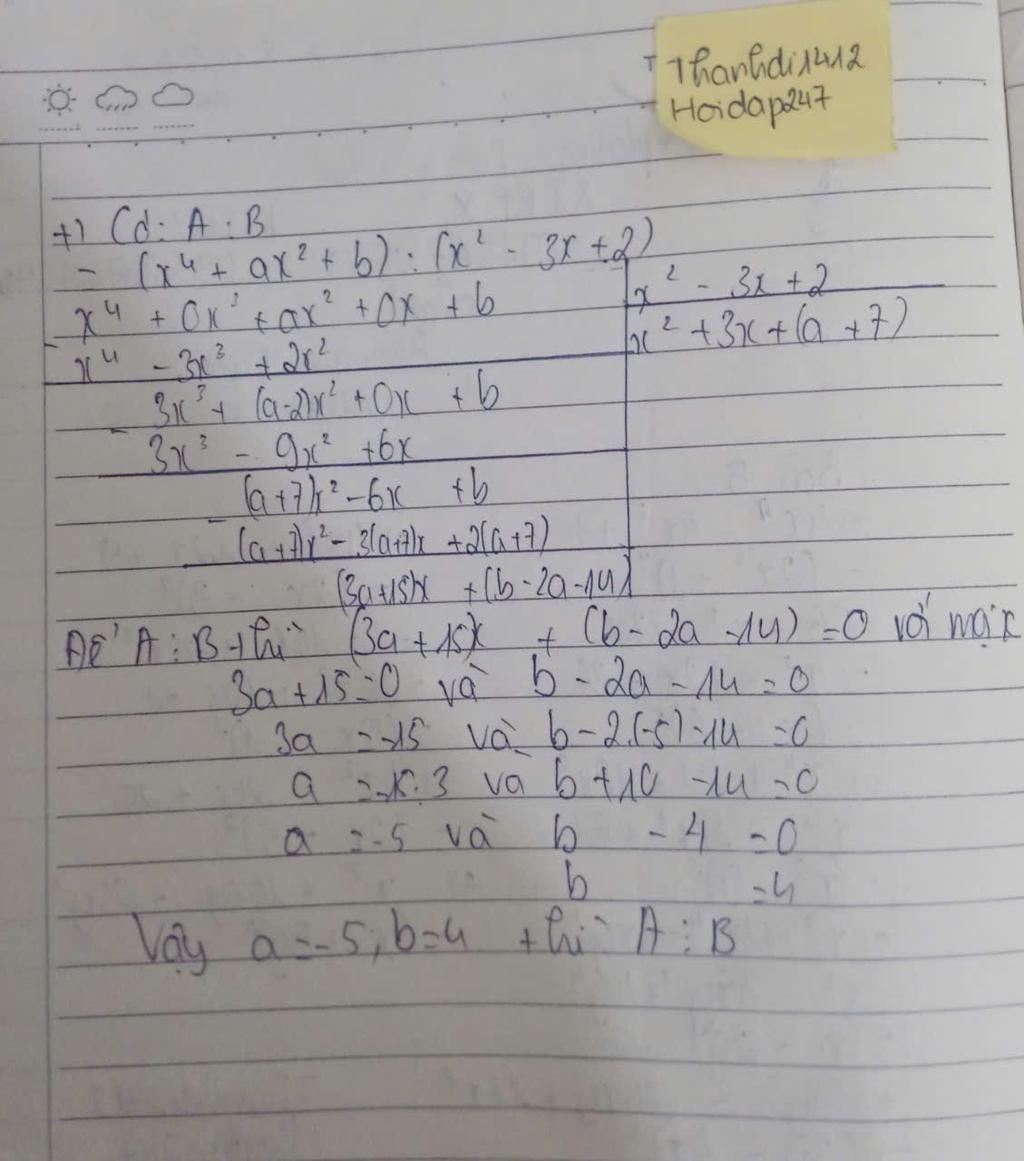 Thanhdi1412
Hoidap247
+) Có: A : B
= (x⁴ + ax² + b) : (x² - 3x + 2)
x⁴ + 0x³ + ax² + 0x + b | x² - 3x + 2
- x⁴ - 3x³ + 2x² | x² + 3x + (a + 7)
3x³ + (a-2)x² + 0x + b
- 3x³ - 9x² + 6x
(a+7)x² - 6x + b
- (a+7)x² - 3(a+7)x + 2(a+7)
(3a+15)x + (b - 2a - 14)
Để A ⋮ B thì (3a + 15)x + (b - 2a - 14) = 0 với mọi x
3a + 15 = 0 và b - 2a - 14 = 0
3a = -15 và b - 2.(-5) - 14 = 0
a = -15 : 3 và b + 10 - 14 = 0
a = -5 và b - 4 = 0
b = 4
Vậy a = -5, b = 4 thì A ⋮ B